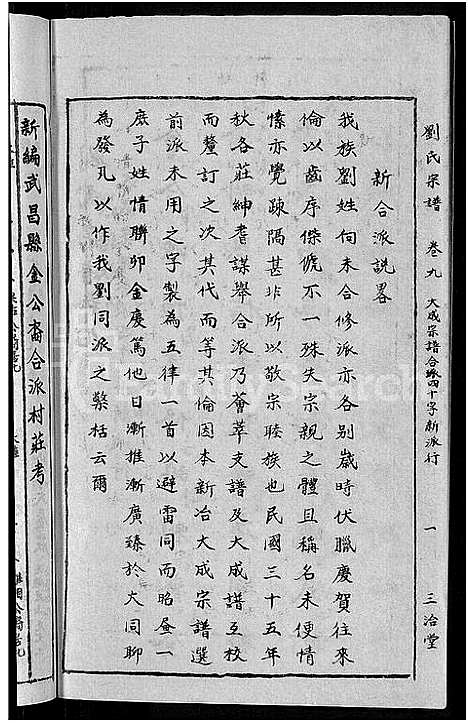 劉氏宗譜 卷九 大成宗譜合派四十字新派行 一 三治堂
新合派說畧
我族劉姓向未合修派亦各别歲時伏臘慶賀往來
倫以齒序傑俿不一殊失宗親之體且稱名未便情
愫亦覺疎隔甚非所以敬宗睦族也民國三十五年
秋各莊紳耆謀舉合派乃薈萃支譜及大成譜互校
而釐訂之次其代而等其倫因本新冶大成宗譜選
前派未用之字製為五律一首以避雷同而昭叠一
庶子姓情聯卯金慶篤他日漸推漸廣臻於大同聊
為發凡以作我劉同派之檃栝云爾
新編武昌縣金公裔合派村莊考